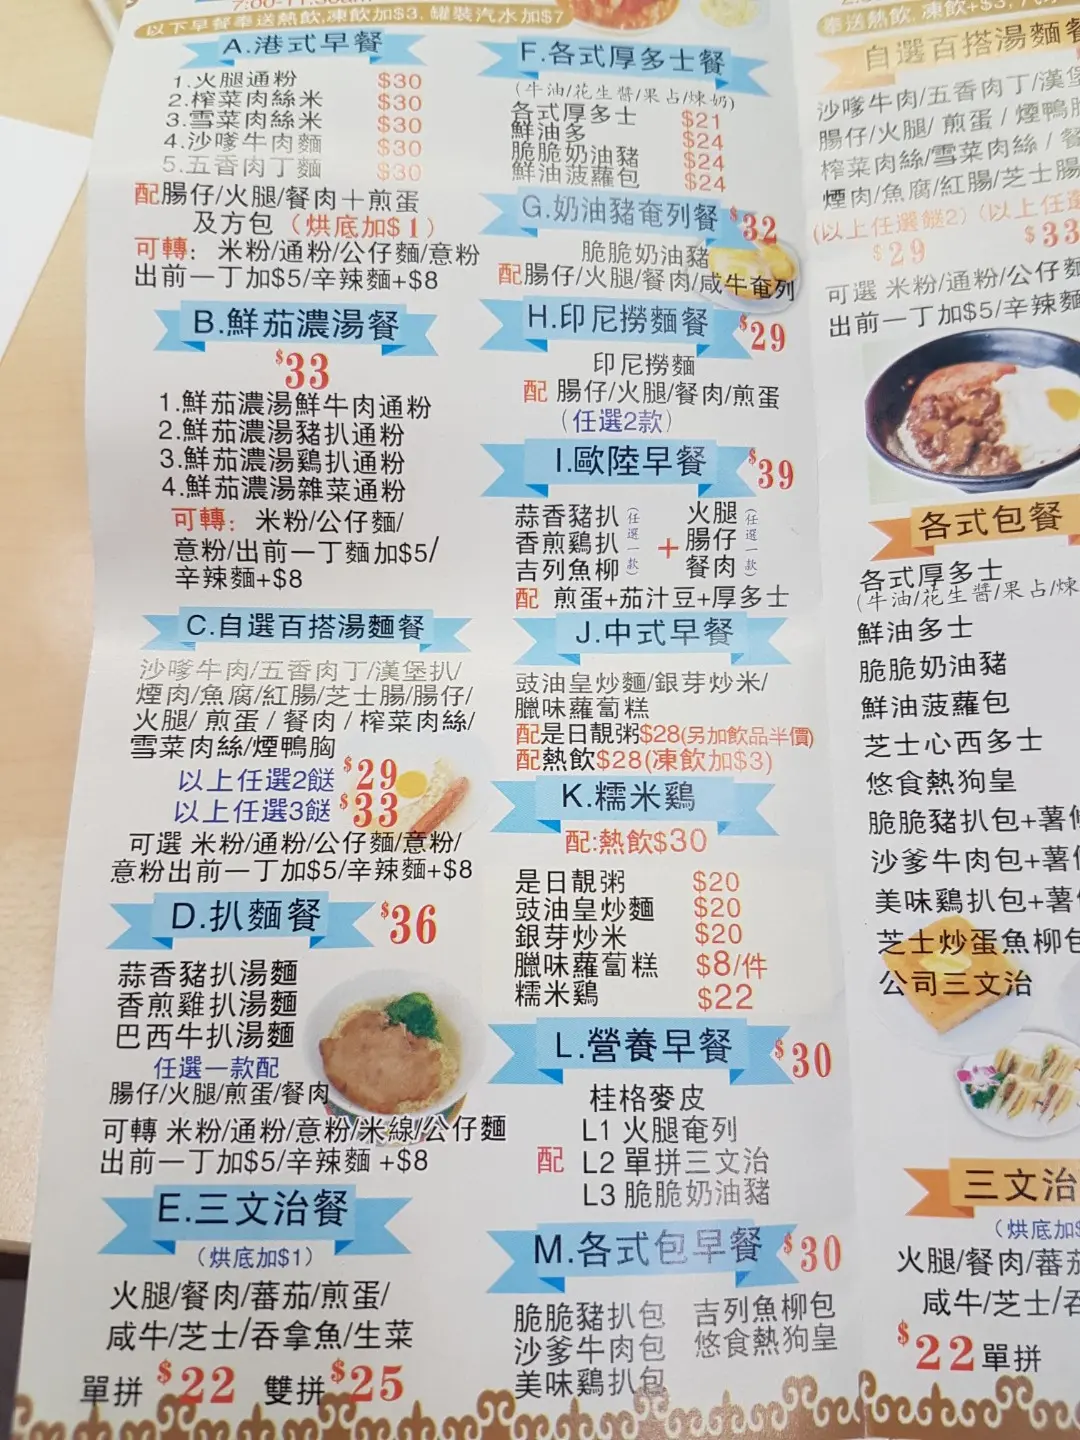 7:00-11:30am
以下早餐奉送熱飲,凍飲加$3, 罐裝汽水加$7
A.港式早餐
1.火腿通粉 $30
2.榨菜肉絲米 $30
3.雪菜肉絲米 $30
4.沙嗲牛肉麵 $30
5.五香肉丁麵 $30
配腸仔/火腿/餐肉十煎蛋
及方包（烘底加$1）
可轉: 米粉/通粉/公仔麵/意粉
出前一丁加$5/辛辣麵+$8
B.鮮茄濃湯餐
$33
1.鮮茄濃湯鮮牛肉通粉
2.鮮茄濃湯豬扒通粉
3.鮮茄濃湯鷄扒通粉
4.鮮茄濃湯雜菜通粉
可轉: 米粉/公仔麵/
意粉/出前一丁麵加$5/
辛辣麵+$8
C.自選百搭湯麵餐
沙嗲牛肉/五香肉丁/漢堡扒/
煙肉/魚腐/紅腸/芝士腸/腸仔/
火腿/ 煎蛋 / 餐肉 / 榨菜肉絲/
雪菜肉絲/煙鴨胸
以上任選2餸 $29
以上任選3餸 $33
可選 米粉/通粉/公仔麵/意粉/
意粉出前一丁加$5/辛辣麵+$8
D.扒麵餐 $36
蒜香豬扒湯麵
香煎雞扒湯麵
巴西牛扒湯麵
任選一款配
腸仔/火腿/煎蛋/餐肉
可轉 米粉/通粉/意粉/米線/公仔麵
出前一丁加$5/辛辣麵 +$8
E.三文治餐
（烘底加$1）
火腿/餐肉/蕃茄/煎蛋/
咸牛/芝士/吞拿魚/生菜
單拼 $22 雙拼 $25
F.各式厚多士餐
(牛油/花生醬/果占/煉奶)
各式厚多士 $21
鮮油多 $24
脆脆奶油豬 $24
鮮油菠蘿包 $24
G.奶油豬奄列餐 $32
脆脆奶油豬
配腸仔/火腿/餐肉/咸牛奄列
H.印尼撈麵餐 $29
印尼撈麵
配 腸仔/火腿/餐肉/煎蛋
（任選2款）
I.歐陸早餐 $39
蒜香豬扒 火腿
香煎鷄扒 (任選一款) + 腸仔 (任選一款)
吉列魚柳 餐肉
配 煎蛋+茄汁豆+厚多士
J.中式早餐
豉油皇炒麵/銀芽炒米/
臘味蘿蔔糕
配是日靚粥$28(另加飲品半價)
配熱飲$28(凍飲加$3)
K.糯米鷄
配:熱飲$30
是日靚粥 $20
豉油皇炒麵 $20
銀芽炒米 $20
臘味蘿蔔糕 $8/件
糯米鷄 $22
L.營養早餐 $30
桂格麥皮
L1 火腿奄列
配 L2 單拼三文治
L3 脆脆奶油豬
M.各式包早餐 $30
脆脆豬扒包 吉列魚柳包
沙爹牛肉包 悠食熱狗皇
美味鷄扒包
奉送熱飲, 凍飲+$3,
自選百搭湯麵餐
沙嗲牛肉/五香肉丁/漢堡
腸仔/火腿/ 煎蛋 / 煙鴨
榨菜肉絲/雪菜肉絲 / 餐
煙肉/魚腐/紅腸/芝士腸
(以上任選餸2) (以上任選
$29 $33
可選 米粉/通粉/公仔麵
出前一丁加$5/辛辣麵
各式包餐
各式厚多士
(牛油/花生醬/果占/煉
鮮油多士
脆脆奶油豬
鮮油菠蘿包
芝士心西多士
悠食熱狗皇
脆脆豬扒包+薯
沙爹牛肉包+薯
美味鷄扒包+薯
芝士炒蛋魚柳包
公司三文治
三文治
（烘底加$
火腿/餐肉/蕃茄
咸牛/芝士/吞
$22 單拼